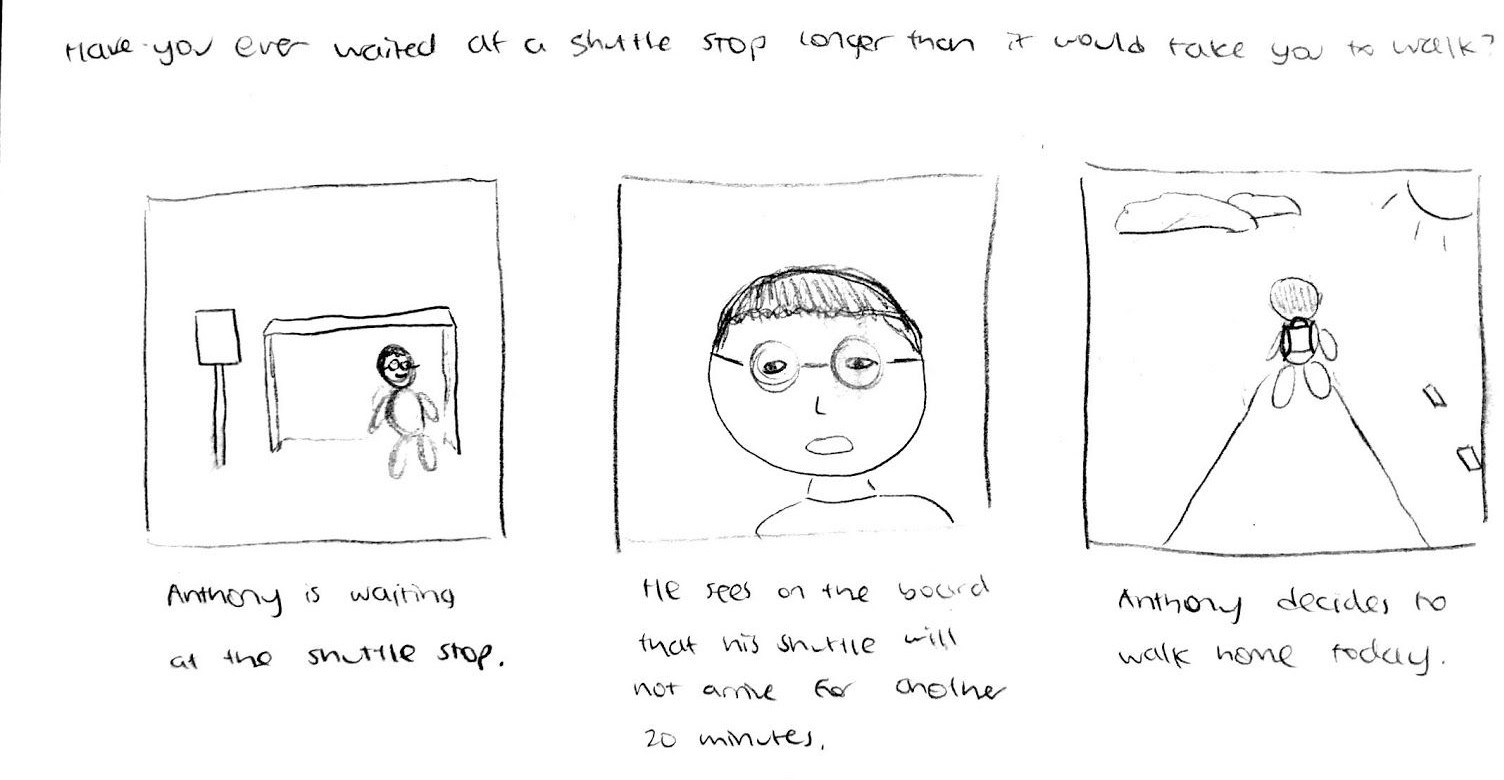 Have you ever waited at a shuttle stop longer than it would take you to walk?
Anthony is waiting
at the shuttle stop.
He sees on the board
that his shuttle will
not arrive for another
20 minutes.
Anthony decides to
walk home today.